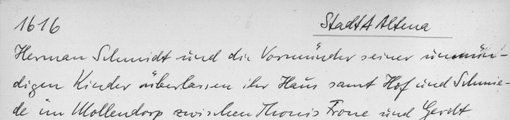 1616
StadtA Altena
Herman Schmidt und die Vormünder seiner unmün-
digen Kinder überlassen ihr Haus samt Hof und Schmie-
de im Mollendorp zwischen Thonis Frone und Gerdt